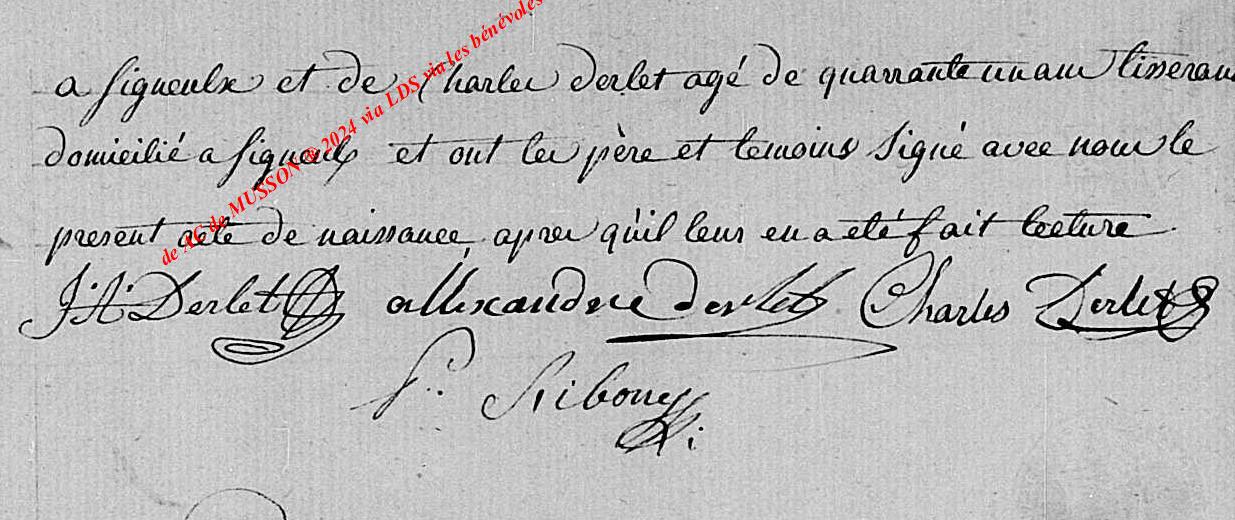 a signeulx et de Charles derlet agé de quarrante un ans tisseran
domicilié a signeulx et ont les père et temoins signé avec nous le
present acte de naissance, apres qu'il leur en a eté fait lecture
J: A: Derlet allexandre derlet Charles Derlet
de AC de MUSSON © 2024 via LDS via les bénévoles